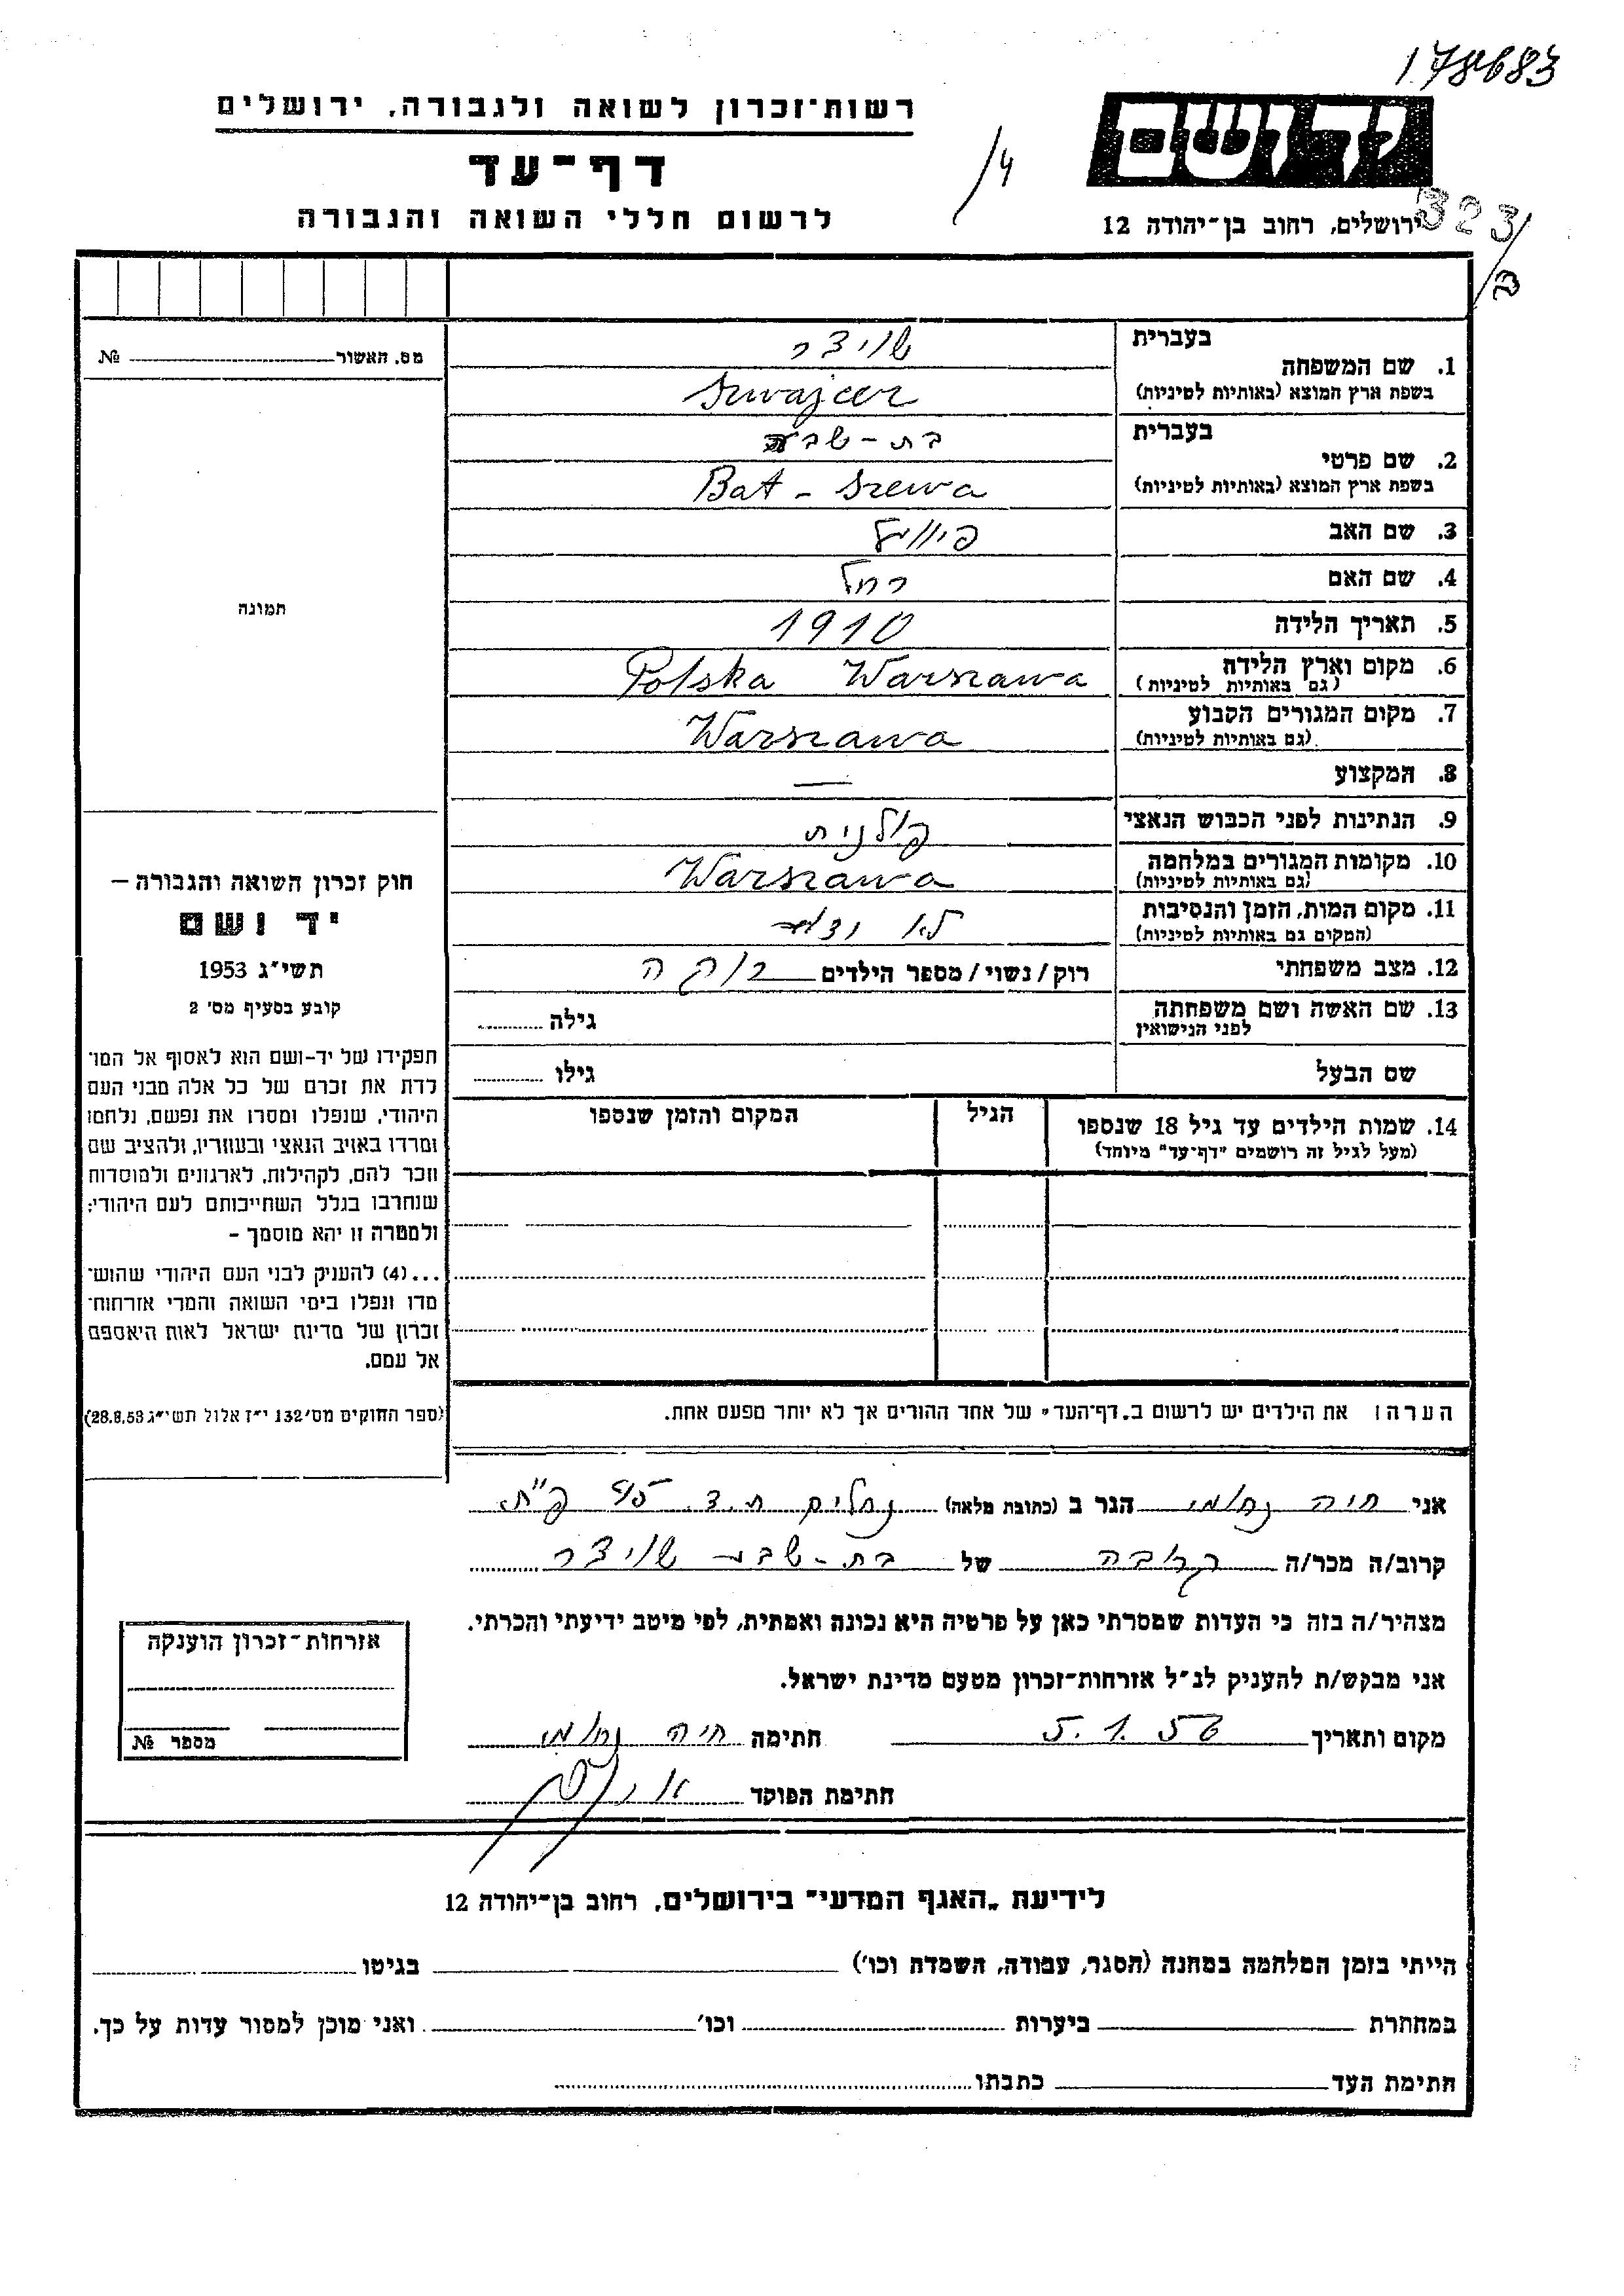 178683
רשות-זכרון לשואה ולגבורה, ירושלים
דף-עד
לרשום חללי השואה והגבורה
ידושם
ירושלים, רחוב בן-יהודה 12
323/
1/4
מס. האשור № 
תמונה
בעברית שויצר
1. שם המשפחה
בשפת ארץ המוצא (באותיות לטיניות) Szwajcer
בעברית בת-שבע
2. שם פרטי
בשפת ארץ המוצא (באותיות לטיניות) Bat-Szewa
3. שם האב
4. שם האם רחל
5. תאריך הלידה 1910
6. מקום וארץ הלידה Polska Warszawa
(גם באותיות לטיניות)
7. מקום המגורים הקבוע Warszawa
(גם באותיות לטיניות)
8. המקצוע —
9. הנתינות לפני הכבוש הנאצי פולנית
10. מקומות המגורים במלחמה Warszawa
(גם באותיות לטיניות)
11. מקום המות, הזמן והנסיבות לא
(המקום גם באותיות לטיניות)
12. מצב משפחתי רוק/נשוי/מספר הילדים רוקה
13. שם האשה ושם משפחתה גילה
לפני הנישואין
שם הבעל גילו
14. שמות הילדים עד גיל 18 שנספו הגיל המקום והזמן שנספו
(מעל לגיל זה רושמים "דף-עד" מיוחד)
הערה: את הילדים יש לרשום ב„דף-העד" של אחד ההורים אך לא יותר מפעם אחת.
חוק זכרון השואה והגבורה –
יד ושם
תשי"ג 1953
קובע בסעיף מס' 2
תפקידו של יד-ושם הוא לאסוף אל המו-
לדת את זכרם של כל אלה מבני העם
היהודי, שנפלו ומסרו את נפשם, נלחמו
ומרדו באויב הנאצי ובעוזריו, ולהציב שם
וזכר להם, לקהילות, לארגונים ולמוסדות
שנחרבו בגלל השתייכותם לעם היהודי;
ולמטרה זו יהא מוסמך –
...(4) להעניק לבני העם היהודי שהוש-
מדו ונפלו בימי השואה והמרי אזרחות-
זכרון של מדינת ישראל לאות היאספם
אל עמם.
(ספר החוקים מס' 132 י"ז אלול תשי"ג 28.8.53)
אני חיה נחומי הגר ב (כתובת מלאה) נחלים ת.ד. פ"ת
קרוב/ה מכר/ה קרובה של בת-שבע שויצר
מצהיר/ה בזה כי העדות שמסרתי כאן על פרטיה היא נכונה ואמתית, לפי מיטב ידיעתי והכרתי.
אני מבקש/ת להעניק לנ"ל אזרחות-זכרון מטעם מדינת ישראל.
מקום ותאריך 5.1.56 חתימה חיה נחומי
חתימת הפוקד
אזרחות-זכרון הוענקה
מספר №
לידיעת „האגף המדעי" בירושלים, רחוב בן-יהודה 12
הייתי בזמן המלחמה במחנה (הסגר, עבודה, השמדה וכו') בגיטו
במחתרת ביערות וכו' ואני מוכן למסור עדות על כך.
חתימת העד כתבתו